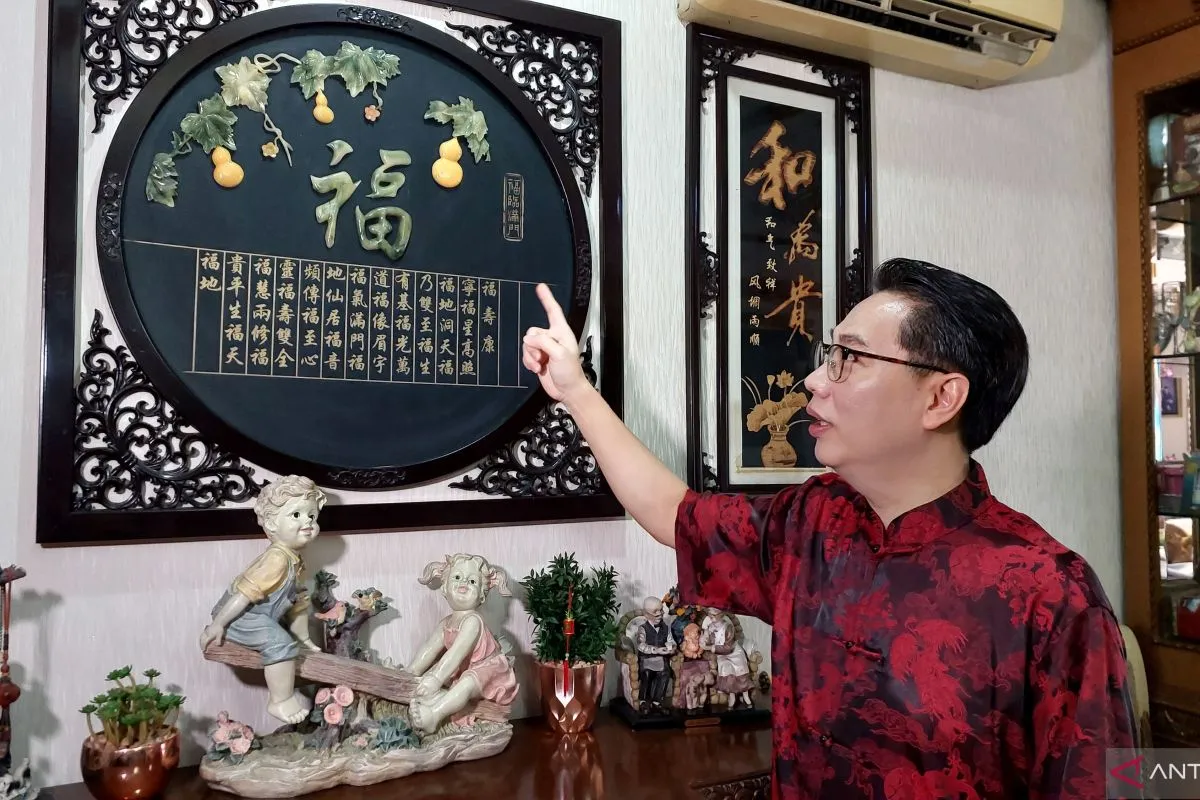 福
福臨滿門
福壽康
寧福星高照
福地洞天福
乃雙至福生
有基福光萬
道福像眉宇
福氣滿門福
地仙居福音
頻傳福至心
靈福壽雙全
福慧兩修福
貴平生福天
福地
和為貴
和氣致祥
風調雨順
ANT